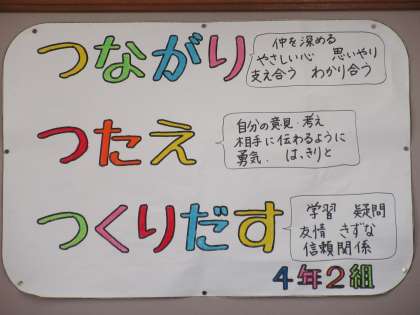 つながり
仲を深める
やさしい心　思いやり
支え合う　わかり合う
つたえ
自分の意見・考え
相手に伝わるように
勇気．はっきりと
つくりだす
学習　疑問
友情　きずな
信頼関係
4年2組